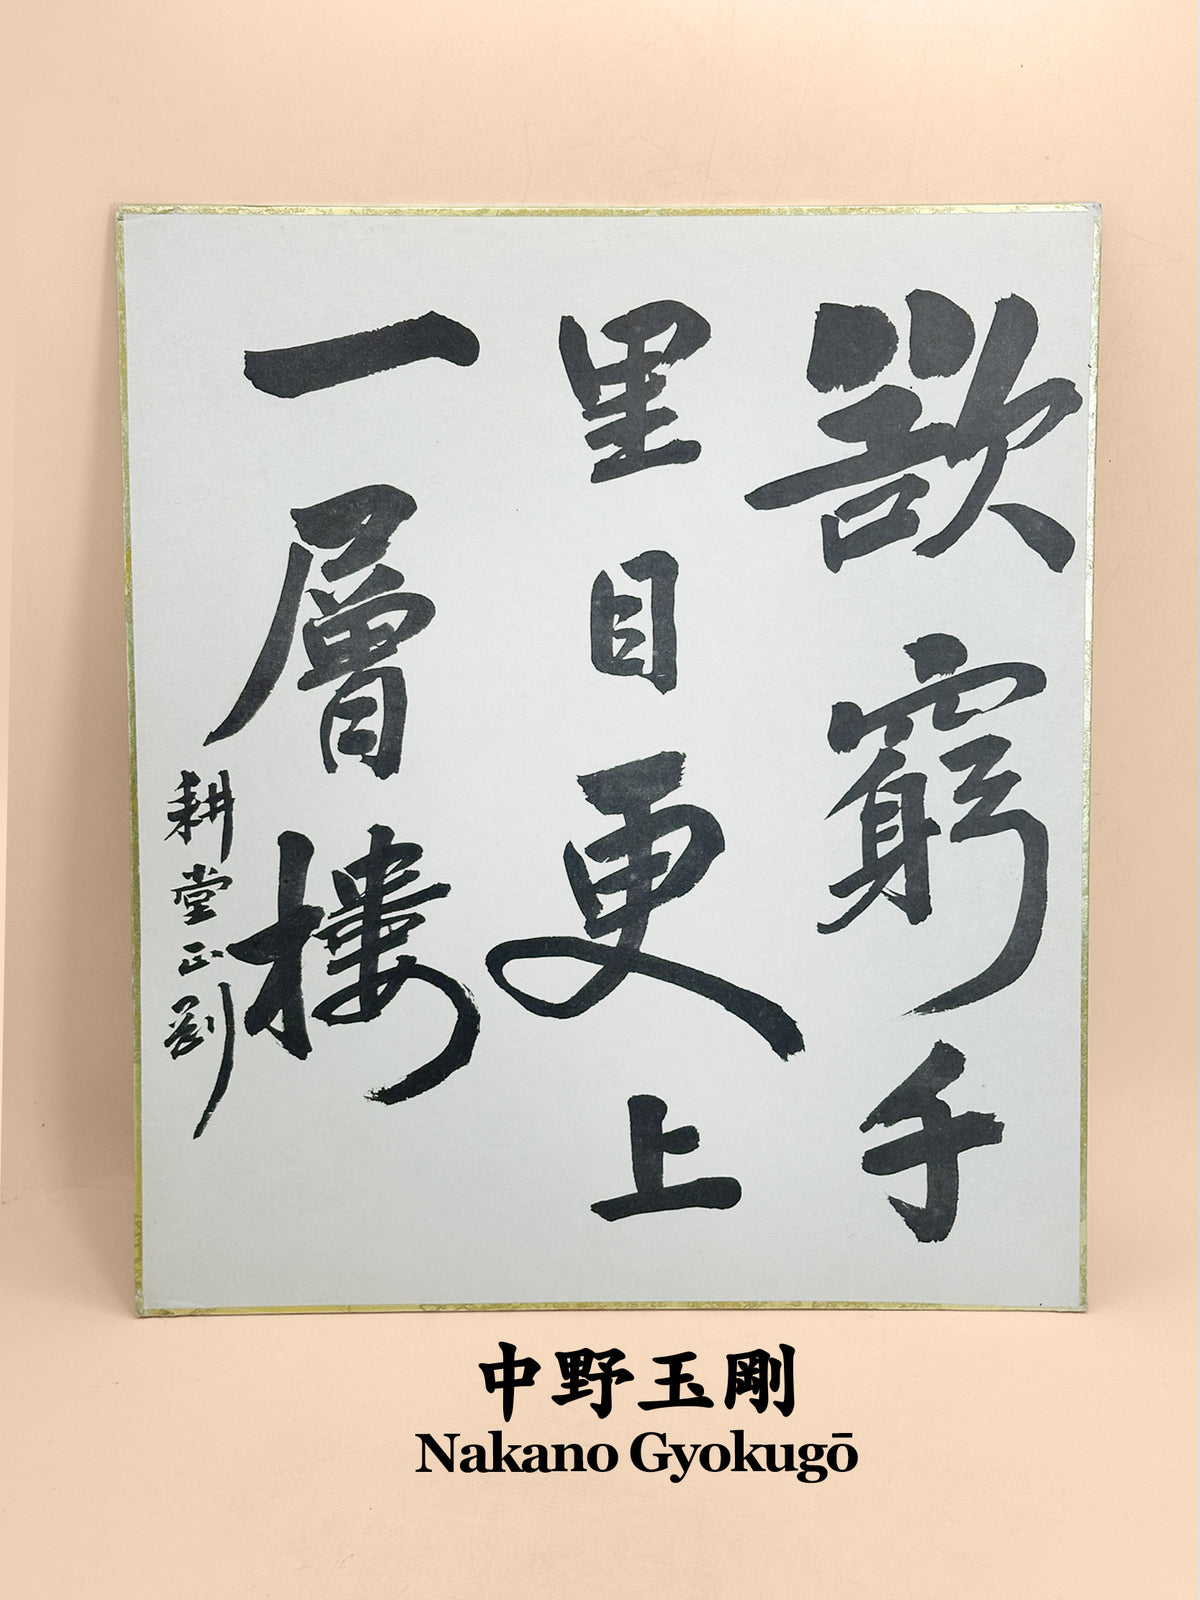 欲窮千
里目更上
一層樓
耕堂正剛
中野玉剛
Nakano Gyokugō